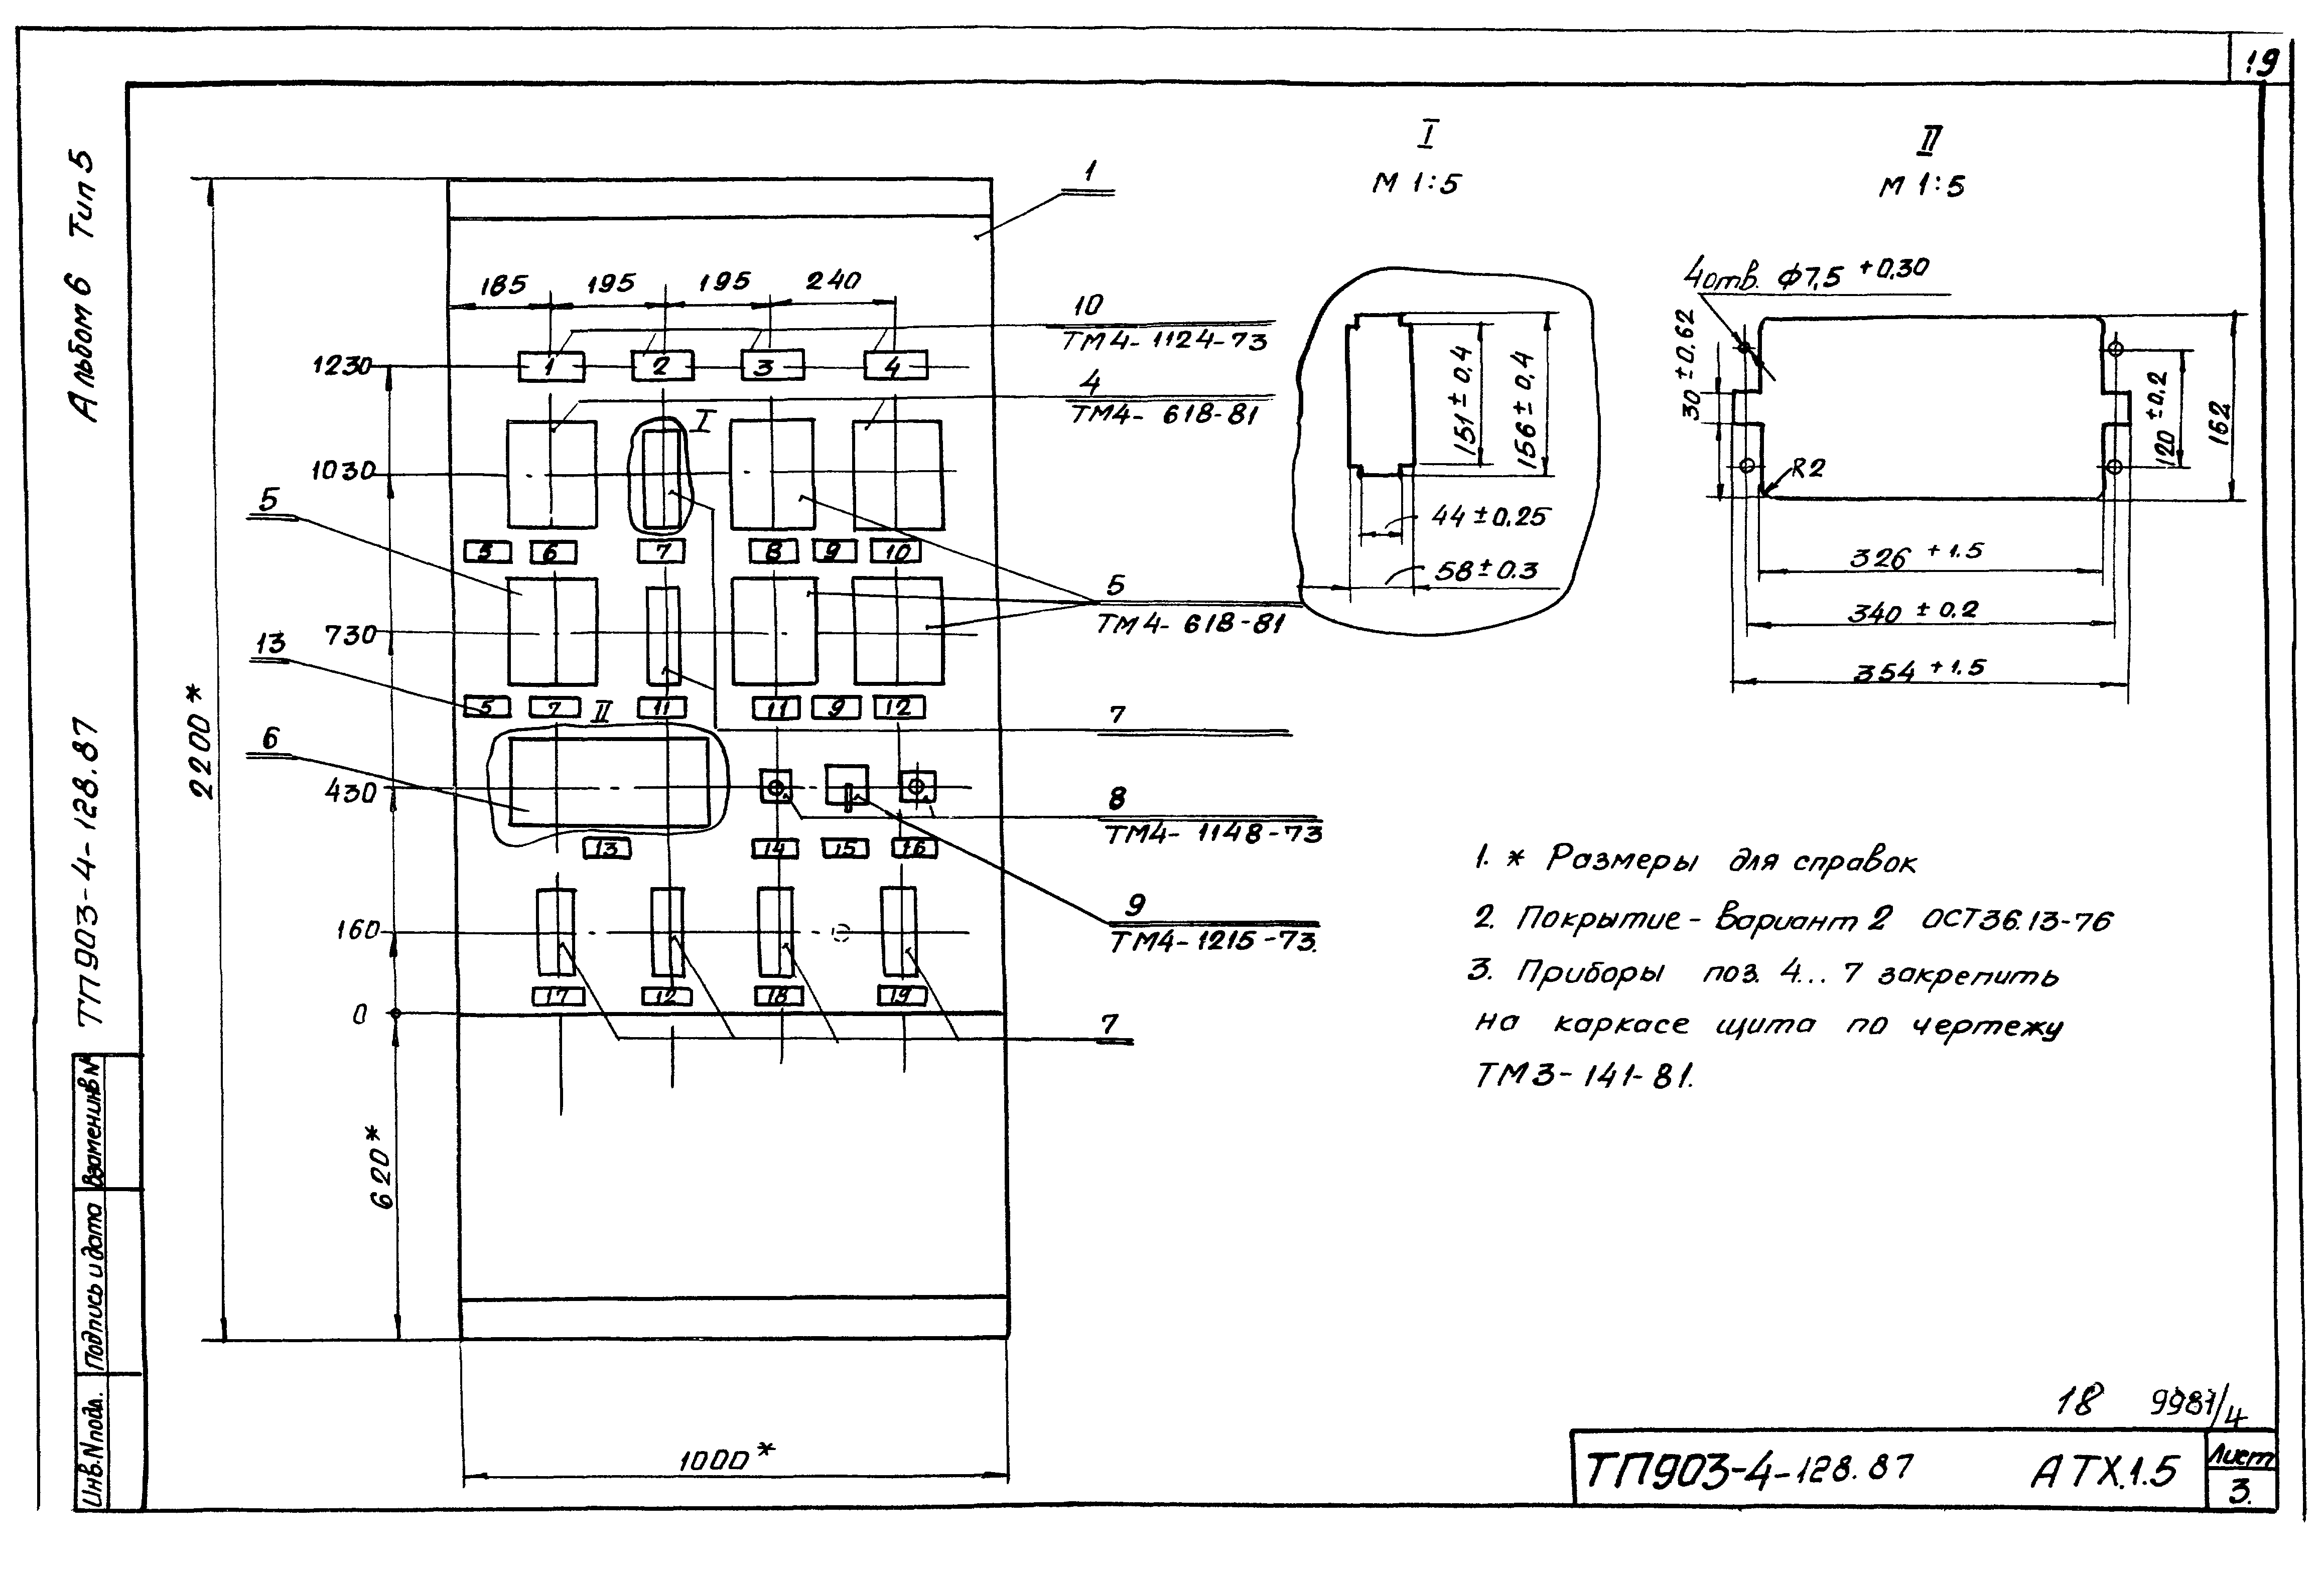 19
Альбом 6 Тип 5
ТП903-4-128.87
Взамен инв N
Подпись и дата
Инв. N подл.
1
185 195 195 240
10
ТМ4-1124-73
1230
1 2 3 4
4
ТМ4-618-81
I
1030
5
5 6 7 8 9 10
5
ТМ4-618-81
730
13
5 7 11 11 9 12
II
7
6
430
8
ТМ4-1148-73
13 14 15 16
9
ТМ4-1215-73.
160
17 12 18 19
0
7
2200*
620*
1000*
I
М 1:5
151±0,4
156±0,4
44±0.25
58±0.3
II
М 1:5
4отв. ф7,5 +0,30
30±0.62
R2
120±0.2
162
326 +1.5
340±0.2
354 +1.5
1. * Размеры для справок
2. Покрытие - Вариант 2 ОСТ36.13-76
3. Приборы поз. 4... 7 закрепить
на каркасе щита по чертежу
ТМ3-141-81.
18 9981/4
ТП903-4-128.87 АТХ.1.5
Лист
3.